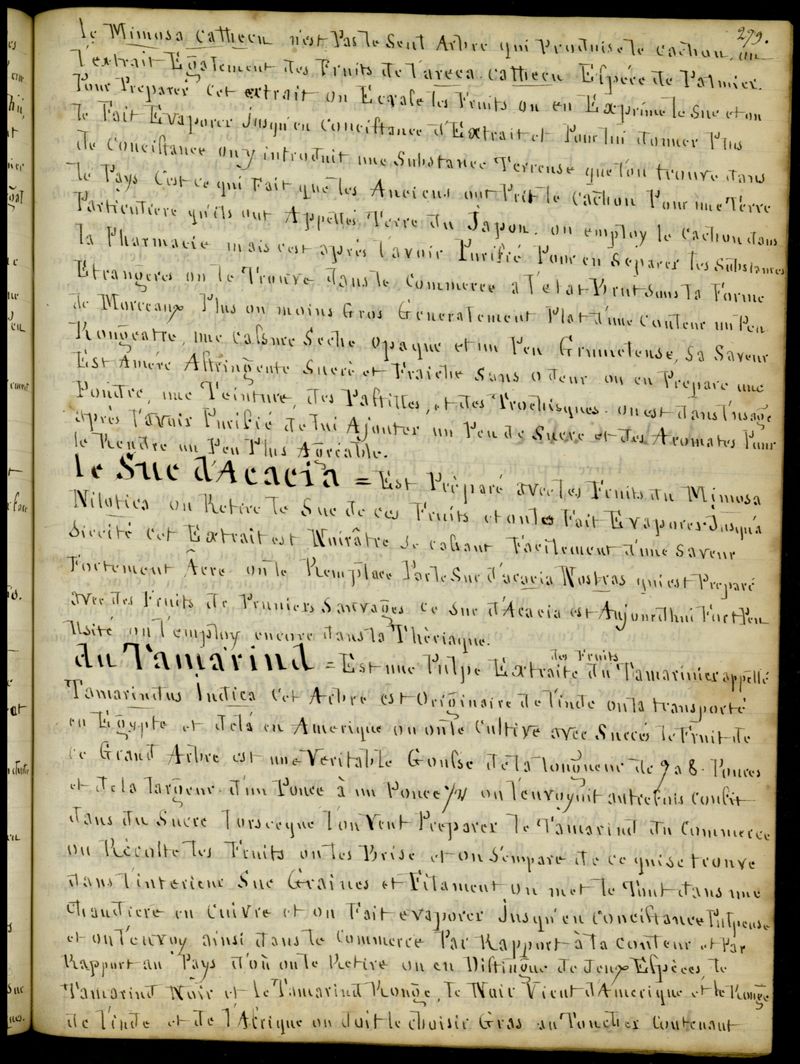 279.
Le Mimosa Cattiecu n'est Pas le Seul Arbre qui Produise le Cachou, on
l'extrait Egalement des Fruits de l'areca. Cattiecu Espéce de Palmier.
Pour Preparer Cet extrait on Ecrase les Fruits on en Exprime le Suc et on
le Fait Evaporer Jusqu'en Concistance d'Extrait et Pour lui donner Plus
de Concistance on y introduit une Substance Terreuse que l'on trouve dans
le Pays C'est ce qui Fait que les Anciens ont Prit le Cachou Pour une Terre
Particuliere qu'ils ont Appellés Terre du Japon. on employ le Cachou dans
la Pharmacie mais c'est aprés l'avoir Purifié Pour en Separer les Substances
Etrangeres on le Trouve dans le Commerce a l'etat Brut Sous la Forme
de Morceaux Plus ou moins Gros Generalement Plat d'une Couleur un Peu
Rougeatre, une Casure Seche Opaque et un Peu Grumeleuse, Sa Saveur
Est Amére Astringente Sucré et Fraiche Sans odeur on en Prepare une
Poudre, une Teinture, des Pastilles, et des Trochisques. on est dans l'usage
aprés l'avoir Purifié de lui Ajouter un Peu de Sucre et des Aromates Pour
le Rendre un Peu Plus Agréable.
le Suc d'Acacia = Est Préparé avec les Fruits du Mimosa
Nilotica on Retire le Suc de ces Fruits et on les Fait Evaporer Jusqu'a
Siccité Cet Extrait est Noirâtre Se casant Facilement d'une Saveur
Fortement Âcre on le Remplace Par le Suc d'acacia Nostras qui est Preparé
avec des Fruits de Pruniers Sauvages Ce Suc d'Acacia est Aujourdhui Fort Peu
Usité on l'employ encore dans la Thériaque.
du Tamarind = Est une Pulpe Extraite des Fruits du Tamarinier appellé
Tamarindus Indica Cet Arbre est Originaire de l'inde on la transporté
en Egypte et de là en Amerique ou on le Cultive avec Succés le Fruit de
ce Grand Arbre est une Veritable Gousse de la longueur de 7 a 8. Pouces
et de la largeur d'un Pouce à un Pouce 1/2 on l'envoyoit autrefois Confit
dans du Sucre lorsceque l'on Veut Preparer le Tamarind du Commerce
on Récolte les Fruits on les Brise et on S'empare de ce qui se trouve
dans l'interieur Suc Graines et Filament on met le Tout dans une
Chaudiere en Cuivre et on Fait evaporer Jusqu'en Concistance Pulpeuse
et on l'envoy ainsi dans le Commerce Par Rapport à la Couleur et Par
Rapport au Pays d'où on le Retire on en Distingue de deux Espéces, le
Tamarind Noir et le Tamarind Rouge, le Noir Vient d'Amerique et le Rouge
de l'inde et de l'Afrique on doit le choisir Gras au Toucher Contenant